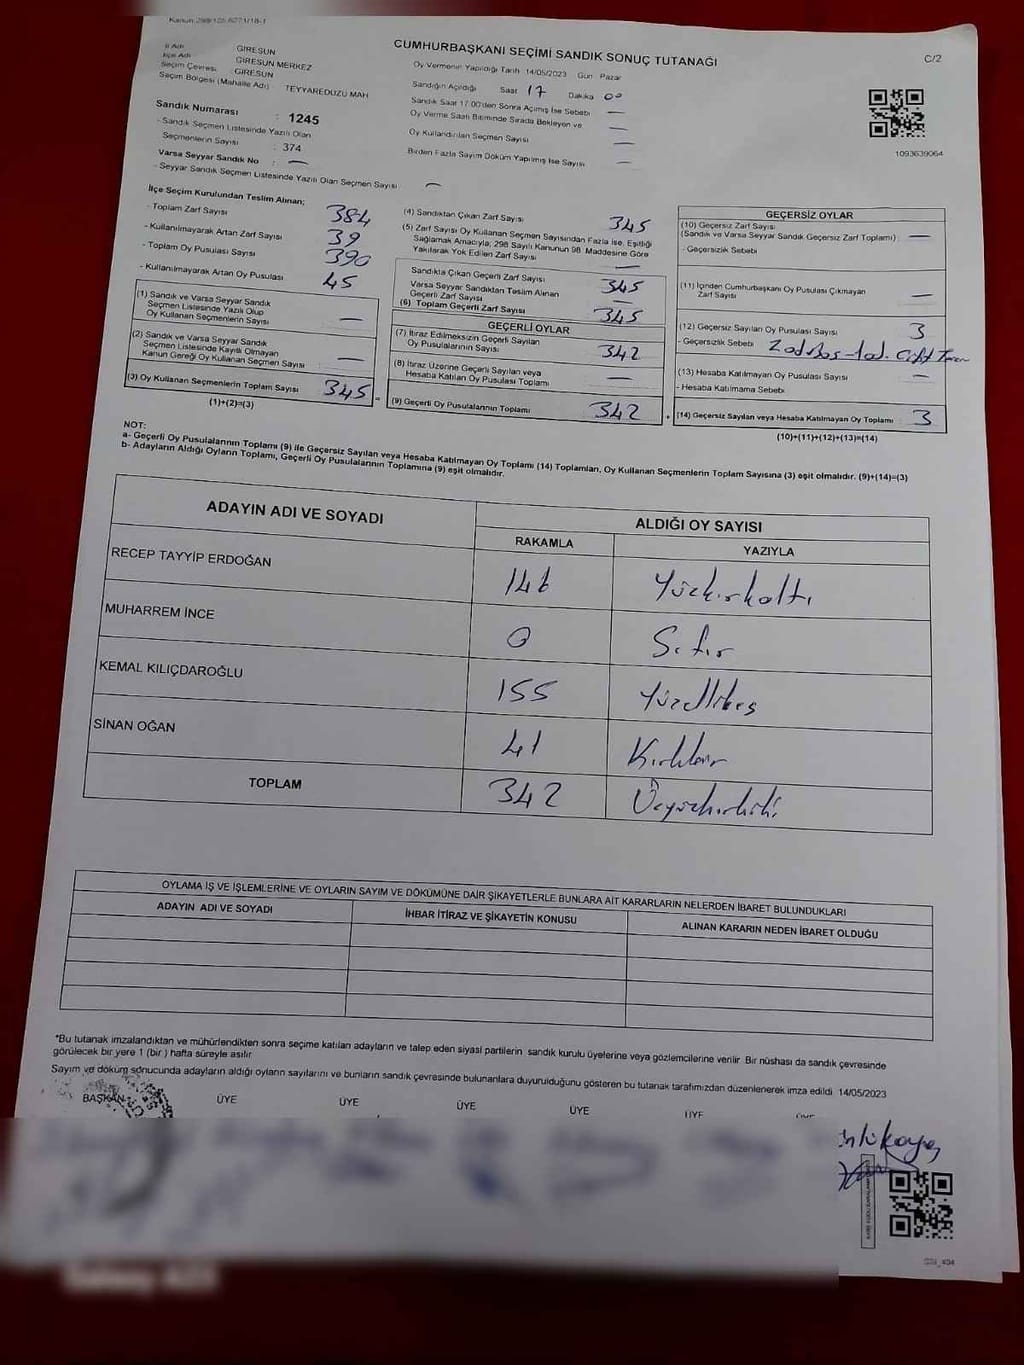 Kanun 298/105,6271/18-1
CUMHURBAŞKANI SEÇİMİ SANDIK SONUÇ TUTANAĞI
C/2
İl Adı GİRESUN
İlçe Adı GİRESUN MERKEZ
Seçim Çevresi GİRESUN
Seçim Bölgesi (Mahalle Adı) TEYYAREDÜZÜ MAH
Sandık Numarası : 1245
- Sandık Seçmen Listesinde Yazılı Olan
Seçmenlerin Sayısı : 374
Varsa Seyyar Sandık No : —
- Seyyar Sandık Seçmen Listesinde Yazılı Olan Seçmen Sayısı —
Oy Vermenin Yapıldığı Tarih 14/05/2023 Gün Pazar
Sandığın Açıldığı Saat 17 Dakika 00
Sandık Saat 17.00'den Sonra Açılmış İse Sebebi —
Oy Verme Saati Bitiminde Sırada Bekleyen ve
Oy Kullandırılan Seçmen Sayısı —
Birden Fazla Sayım Döküm Yapılmış İse Sayısı —
1093639064
İlçe Seçim Kurulundan Teslim Alınan;
- Toplam Zarf Sayısı 384
- Kullanılmayarak Artan Zarf Sayısı 39
- Toplam Oy Pusulası Sayısı 390
- Kullanılmayarak Artan Oy Pusulası 45
(1) Sandık ve Varsa Seyyar Sandık
Seçmen Listesinde Yazılı Olup
Oy Kullanan Seçmenlerin Sayısı —
(2) Sandık ve Varsa Seyyar Sandık
Seçmen Listesinde Kayıtlı Olmayan
Kanun Gereği Oy Kullanan Seçmen Sayısı —
(3) Oy Kullanan Seçmenlerin Toplam Sayısı 345 =
(1)+(2)=(3)
(4) Sandıktan Çıkan Zarf Sayısı 345
(5) Zarf Sayısı Oy Kullanan Seçmen Sayısından Fazla ise, Eşitliği
Sağlamak Amacıyla, 298 Sayılı Kanunun 98. Maddesine Göre
Yakılarak Yok Edilen Zarf Sayısı —
Sandıkta Çıkan Geçerli Zarf Sayısı 345
Varsa Seyyar Sandıktan Teslim Alınan
Geçerli Zarf Sayısı —
(6) Toplam Geçerli Zarf Sayısı 345
GEÇERLİ OYLAR
(7) İtiraz Edilmeksizin Geçerli Sayılan
Oy Pusulalarının Sayısı 342
(8) İtiraz Üzerine Geçerli Sayılan veya
Hesaba Katılan Oy Pusulası Toplamı —
(9) Geçerli Oy Pusulalarının Toplamı 342 +
GEÇERSİZ OYLAR
(10) Geçersiz Zarf Sayısı
(Sandık ve Varsa Seyyar Sandık Geçersiz Zarf Toplamı) —
- Geçersizlik Sebebi
(11) İçinden Cumhurbaşkanı Oy Pusulası Çıkmayan
Zarf Sayısı —
(12) Geçersiz Sayılan Oy Pusulası Sayısı 3
- Geçersizlik Sebebi
(13) Hesaba Katılmayan Oy Pusulası Sayısı —
- Hesaba Katılmama Sebebi
(14) Geçersiz Sayılan veya Hesaba Katılmayan Oy Toplamı 3
(10)+(11)+(12)+(13)=(14)
NOT:
a- Geçerli Oy Pusulalarının Toplamı (9) ile Geçersiz Sayılan veya Hesaba Katılmayan Oy Toplamı (14) Toplamları, Oy Kullanan Seçmenlerin Toplam Sayısına (3) eşit olmalıdır. (9)+(14)=(3)
b- Adayların Aldığı Oyların Toplamı, Geçerli Oy Pusulalarının Toplamına (9) eşit olmalıdır.
ADAYIN ADI VE SOYADI ALDIĞI OY SAYISI
RAKAMLA YAZIYLA
RECEP TAYYİP ERDOĞAN 146 Yüzkırkaltı
MUHARREM İNCE 0 Sıfır
KEMAL KILIÇDAROĞLU 155 Yüzellibeş
SİNAN OĞAN 41 Kırkbir
TOPLAM 342 Üçyüzkırkiki
OYLAMA İŞ VE İŞLEMLERİNE VE OYLARIN SAYIM VE DÖKÜMÜNE DAİR ŞİKAYETLERLE BUNLARA AİT KARARLARIN NELERDEN İBARET BULUNDUKLARI
ADAYIN ADI VE SOYADI İHBAR İTİRAZ VE ŞİKAYETİN KONUSU ALINAN KARARIN NEDEN İBARET OLDUĞU
*Bu tutanak imzalandıktan ve mühürlendikten sonra seçime katılan adayların ve talep eden siyasi partilerin sandık kurulu üyelerine veya gözlemcilerine verilir. Bir nüshası da sandık çevresinde
görülecek bir yere 1 (bir) hafta süreyle asılır.
Sayım ve döküm sonucunda adayların aldığı oyların sayılarını ve bunların sandık çevresinde bulunanlara duyurulduğunu gösteren bu tutanak tarafımızdan düzenlenerek imza edildi. 14/05/2023
BAŞKAN ÜYE ÜYE ÜYE ÜYE ÜYE ÜYE
Galaxy A23